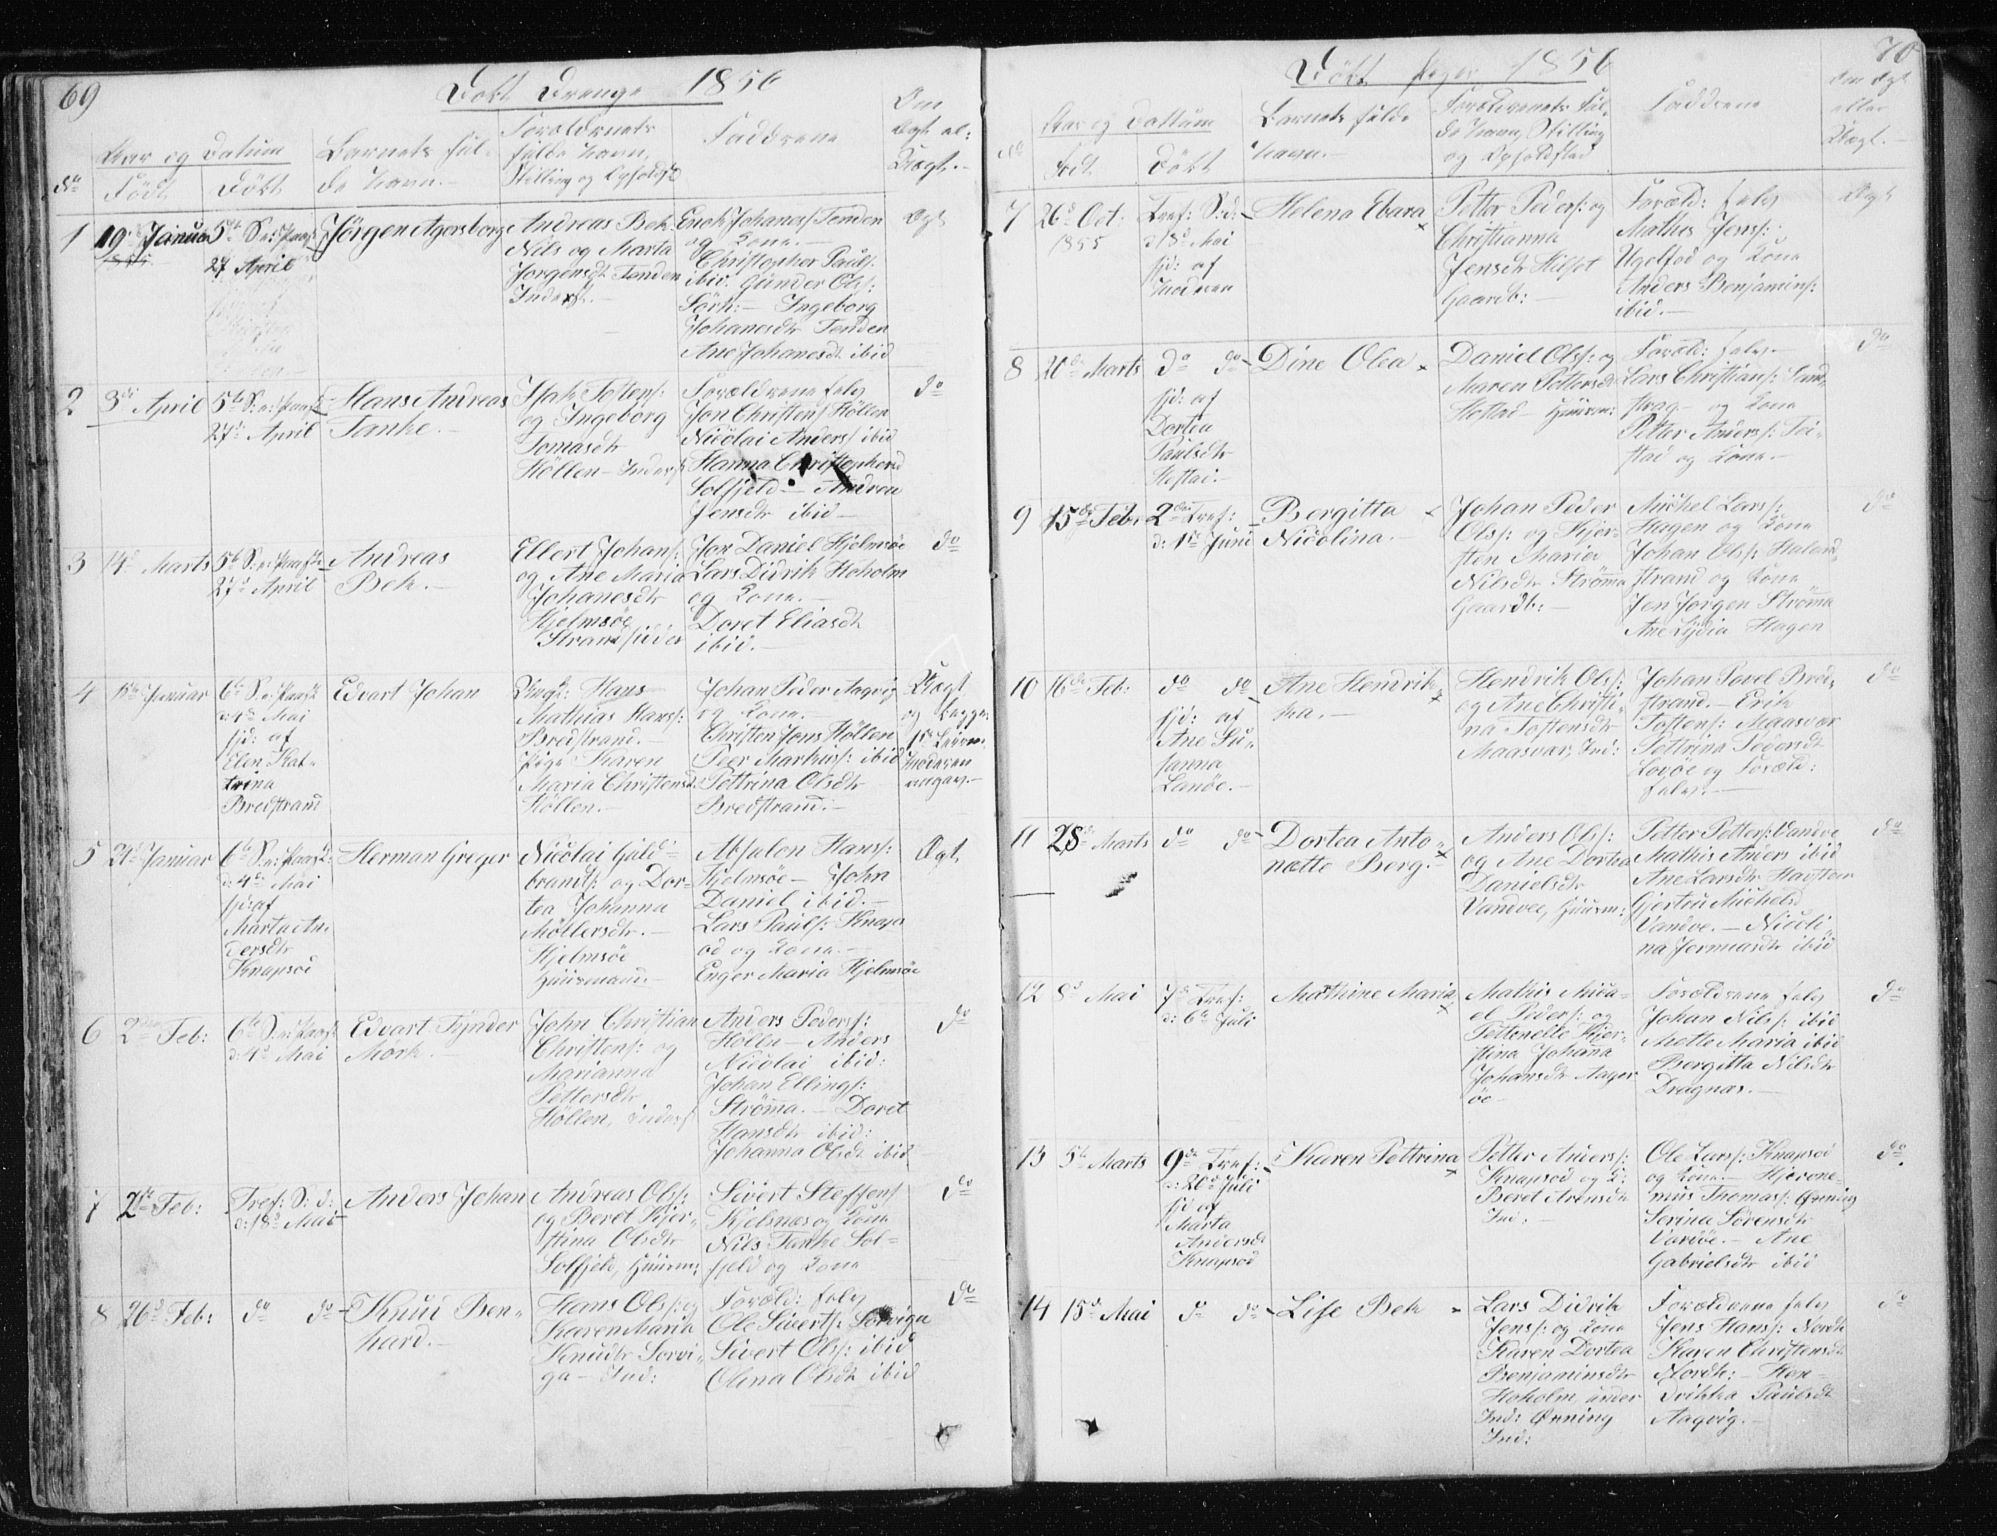 69
Döbt Drenge 1856
Aar og Datum
No
Födt
Döbt
Barnets ful-
de Navn.-
Forældrenets
fulde Navn,
Stilling og Opholdsst
Faddrene
Om
Ægt el:
Uægt.-
1
19 Januar
5te S. e: Paaske
27 April
Jörgen Agersborg
Andreas Bek
Nils og Marta
Jorgensdtr Tenden
Inderst.-
Enok Johanes Tenden
og Kone.-
Christopher Pauls:
ibid. Gunder Ols:
Sörh:- Ingeborg
Johanesdtr Tenden
Ane Johanesdt ibid
Ægt
2
3di April
5te S: e: Paaske
27de April
Hans Andreas
Tanke.-
Isak Toftens:
og Ingeborg
Tomasdtr
Höllen- Inders:
Forældrene selv
Jon Christens Höllen
Nicolai Anders: ibid
Hanna Christophersd
Solfjeld- Andrea
Jensdtr ibid-
do
3
14d Marts
5te S: e: Paaske
27d April
Andreas
Bek.-
Ellert Johans:
og Ane Maria
Johanesdtr
Hjelmsöe
Strandsidder
Jon Daniel Hjelmsöe
Lars Didrik Hoholm
og Kone.-
Doret Eliasdt
ibid.-
do
4
15de Januar
6te S. e: Paaske
d: 4de Mai
hjd: af
Elen Kat-
trina
Bredstrand
Edvart Johan
Ungk: Hans
Mathias Hans:
Bredstrand.-
Pige Karen
Maria Christensd.
Höllen.-
Johan Peder Aagvig
og Kone.-
Christen Jens Höllen
Peer Markus: ibid
Pettrina Olsdtr
Bredstrand.-
Uægt
og begges
1ste Leierm.
Moderen
angav.-
5
21d Januar
6te S. e: Paaske
d: 4de Mai
hjd: af
Marta An-
dersdtr
Knapsöd
Herman Greger
Nicolai Guld-
brands: og Dor-
tea Johanna
Möllersdtr.-
Hjelmsöe
Huusmand.-
Absalon Hans:
Hjelmsöe- John
Daniel ibid.-
Lars Pauls: Knaps
öd og Kone.-
Enger Maria Hjelmsöe
Ægt
6
2den Feb:
6te S. e: Paaske
d: 4d Mai
Edvart Tynder
Mörk.-
John Christian
Christens: og
Marianna
Pettersdtr
Höllen, Inders:
Anders Peders:
Höllen- Anders
Nicolai ibid:
Johan Ellings:
Strömma.- Doret
Hansdtr ibid:
Johanna Olsdt ibid
do
7
2de Feb:
Tref: S: d:
d: 18d Mai
Anders Johan
Andreas Ols:
og Beret Kjer-
stina Olsdtr
Solfjeld, Huusm:
Sivert Steffens
Kjelsnæs og Kone
Nils Tanke Sol-
fjeld og Kone
do
8
26d Feb:
do do
Knud Ben-
hard.-
Hans Ols: og
Karen Maria
Knudtr Sorvi-
ga- Ind:
Foræld: selv
Ole Siverts: Sorviga
Sivert Ols: ibid
Olina Olsdt ibid
do
70
Döbt Piger 1856
No
Aar og Dattum
Födt
Döbt
Barnets fulde
Navn.
Forældrenets ful-
de Navn, Stilling
og Opholdsted
Faddrene
Om Ægt
eller
Uægt.-
7
26d Oct:
1855
Tref: S: d:
d 18d Mai
hjd: af
Moderen
Helena Ebara
Petter Peders: og
Christianna
Jensdtr Hilset
Gaardb:
Foræld: selv
Mathis Jens:
Ugelfod og Kone
Anders Benjamins:
ibid.-
Ægt
8
20de Marts
do do
hjd: af
Dortea
Paulsdtr
Hestad.-
Dine Olea
Daniel Ols: og
Maren Pettersd
Hestad- Huusm:
Foræld: selv-
Lars Christians: Sand
strag- og Kone
Petter Anders: Tei-
stad og Kone.-
do
9
15de Feb:
2den Tref:
d: 1ste Juni
Bergitta
Nicolina.-
Johan Peder
Ols: og Kjer-
sten Maria
Nilsdtr Strömma
Gaardb:-
Michel Lars:
Hagen og Kone
Johan Ols: Haland
strand og Kone
Jen Jorgen Strömma
Ane Lydia Hagen
do
10
16de Feb:
do do
hjd: af
Ane Su-
sanna
Lanöe.-
Ane Hendrik-
ka.-
Hendrik Ols:
og Ane Christi-
na Toftensdtr
Maasvær, Ind:
Johan Povel Bred-
strand.- Erik
Toftens: Maasvær
Pettrina Pedersdt
Lovöe og Foræld:
selv.-
do
11
28de Marts
do do
Dortea Anto-
nætte Berg.-
Anders Ols:
og Ane Dortea
Danielsdtr
Vandve, Huusm:
Petter Petters: Vandve
Mathis Anders ibid
Ane Larsdtr Havstein
Gjertru Michelsd
Vandve.- Nicoli-
na Jermiasdtr ibid
do
12
8d Mai
7de Tref:
d: 6te Juli
Mathine Maria
Mathis Mica-
el Peders: og
Pettenelle Kjer-
stina Johana
Johansdtr Aager
öe-
Forældrene selv
Johan Nils: ibid
Mette Maria ibid
Bergitta Nilsdtr
Dragnæs.-
do
13
5te Marts
9de Tref:
d: 20d Juli
hjd af
Marta
Andersdt
Knapsöd
Karen Pettrina
Petter Anders:
Knapsöd og K:
Beret Arensdtr
Ind:-
Ole Lars: Knapsöd
og Kone.- Hjerone-
mus Thomas: Önning
Serina Sörensdtr
Varöe.- Ane
Gabrielsdtr ibid
do
14
15d Mai
do do
Lise Bek
Lars Didrik
Jens: og Kone
Karen Dortea
Benjaminsdtr
Hoholm under
Ind: Önning
Ind:
Forældrene selv
Jens Hans: Nordh
Karen Christensdtr
Nordh:- Hen-
drikka Paulsdt
Aagvig.-
do